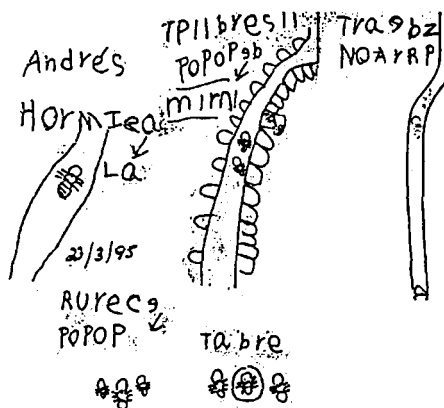 Andrés
HOrmIea
La
23/3/95
TPIIbresII
POPOPgb
mimi
Tragbz
NOArRP
RUrecg
POPOP
Tabre